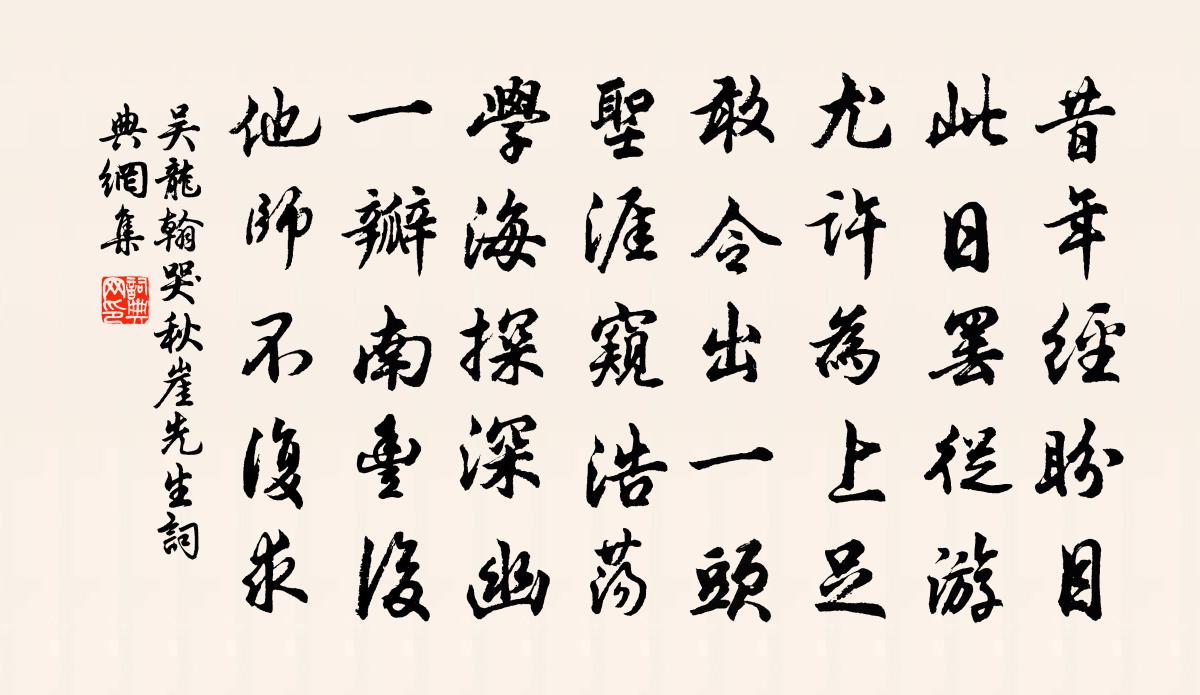 昔年經盼目
此日罢從游
尤許為上足
敢令出一頭
聖涯窺浩荡
學海探深幽
一瓣南豊後
他師不復求
吴龍翰哭秋崖先生詞
典網集
詞典网印